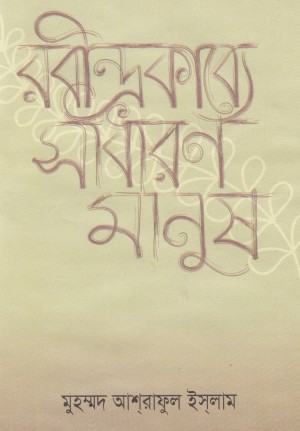 রবীন্দ্রকাব্যে
সাধারণ
মানুষ
মুহম্মদ আশ্‌রাফুল ইস্‌লাম